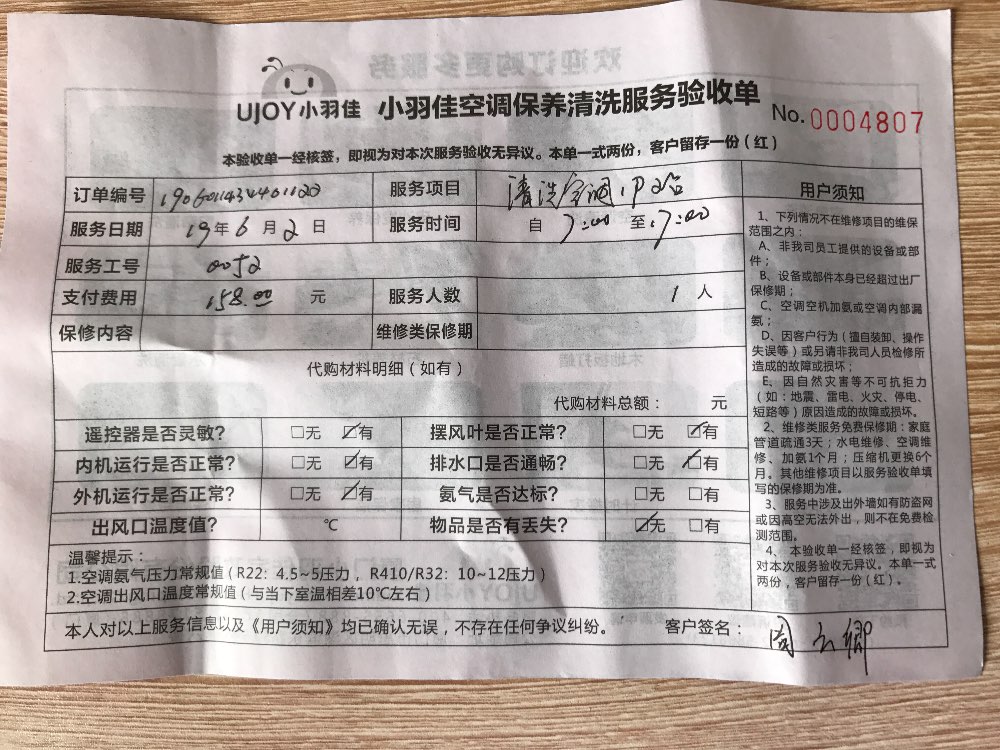 UJOY小羽佳 小羽佳空调保养清洗服务验收单 No.0004807
本验收单一经核签，即视为对本次服务验收无异议。本单一式两份，客户留存一份（红）
订单编号 服务项目 清洗空调
服务日期 19年6月2日 服务时间 自 至17:00
服务工号 0052
支付费用 158.00 元 服务人数 1人
保修内容 维修类保修期
代购材料明细（如有）
代购材料总额： 元
遥控器是否灵敏? □无 ☑有 摆风叶是否正常? □无 ☑有
内机运行是否正常? □无 ☑有 排水口是否通畅? □无 ☑有
外机运行是否正常? □无 ☑有 氨气是否达标? □无 □有
出风口温度值? ℃ 物品是否有丢失? ☑无 □有
温馨提示：
1.空调氨气压力常规值（R22：4.5~5压力，R410/R32：10~12压力）
2.空调出风口温度常规值（与当下室温相差10℃左右）
本人对以上服务信息以及《用户须知》均已确认无误，不存在任何争议纠纷。 客户签名：
用户须知
1、下列情况不在维修项目的维保
范围之内：
A、非我司员工提供的设备或部
件；
B、设备或部件本身已经超过出厂
保修期；
C、空调空机加氨或空调内部漏
氨；
D、因客户行为（擅自装卸、操作
失误等）或另请非我司人员检修所
造成的故障或损坏；
E、因自然灾害等不可抗拒力
（如：地震、雷电、火灾、停电、
短路等）原因造成的故障或损坏。
2、维修类服务免费保修期：家庭
管道疏通3天；水电维修、空调维修
、加氨1个月；压缩机更换6个
月。其他维修项目以服务验收单填
写的保修期为准。
3、服务中涉及出外墙如有防盗网
或因高空无法外出，则不在免费检
测范围。
4、本验收单一经核签，即视为
对本次服务验收无异议。本单一式
两份，客户留存一份（红）。